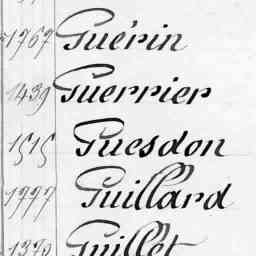 1767 Guérin
1439 Guerrier
1515 Guesdon
1777 Guillard
1370 Guillet